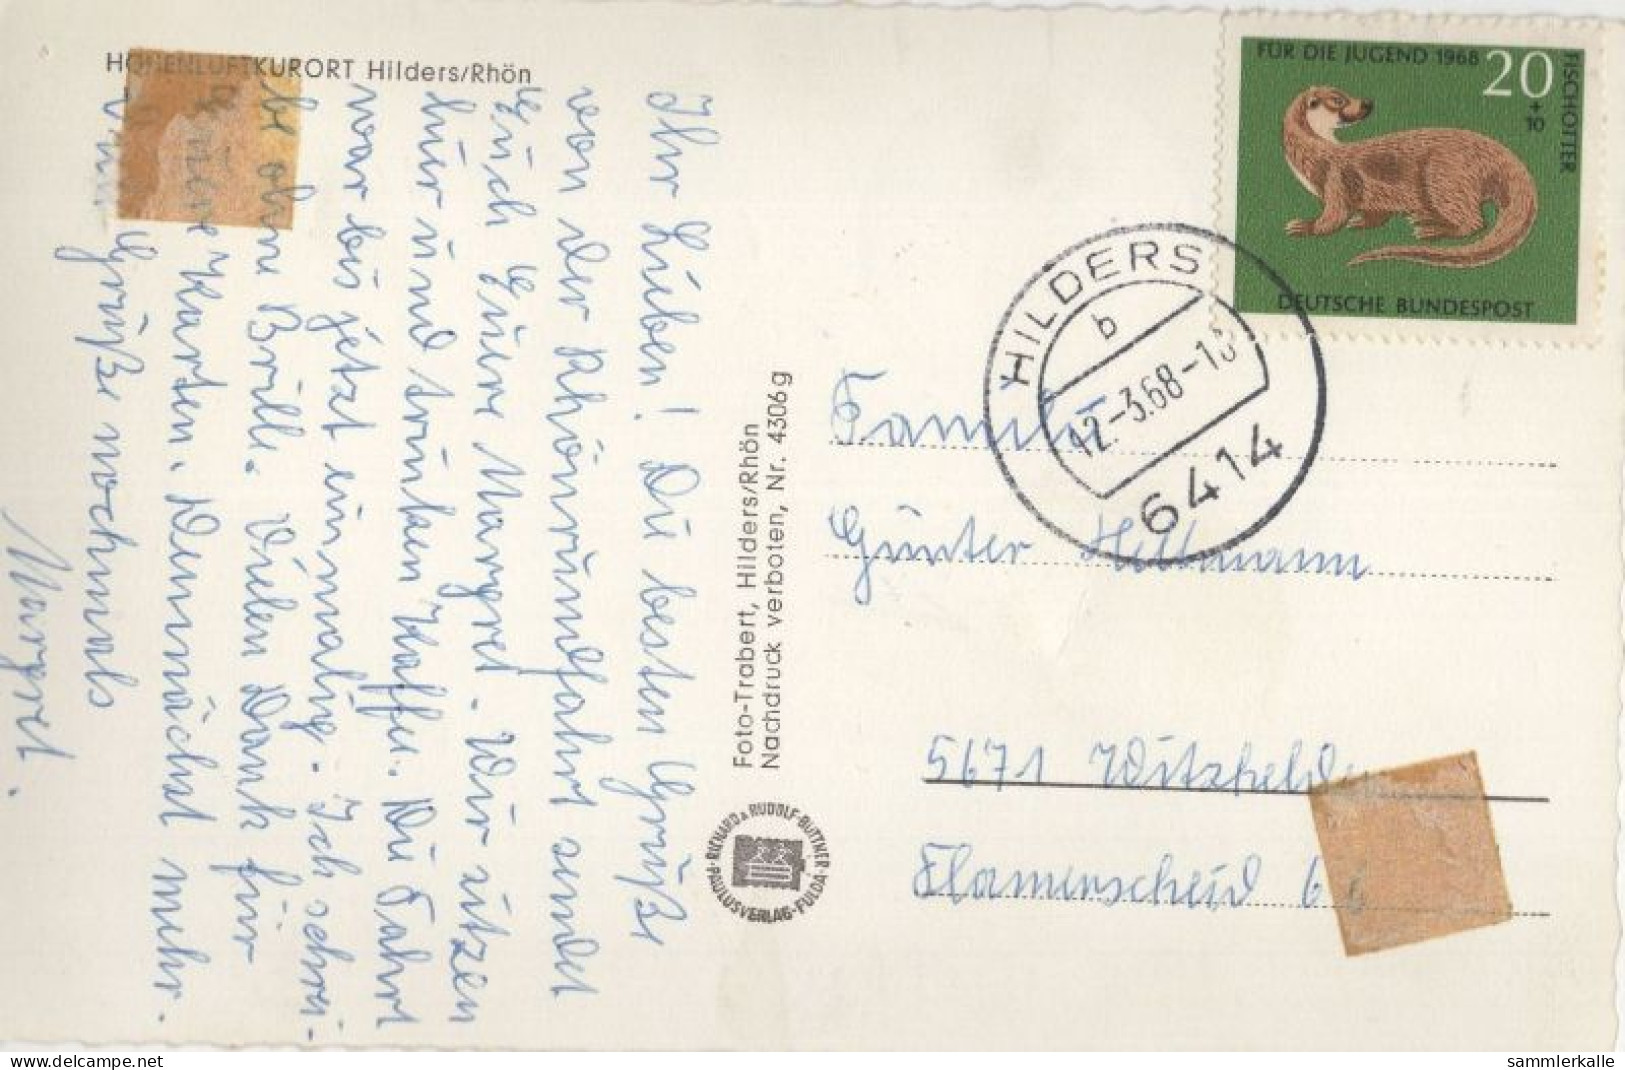 HÖHENLUFTKURORT Hilders/Rhön
Ihr Lieben! Die besten Grüße
von der Rhönrundfahrt sendet
Euch Eure Margret. Wir sitzen
hier und trinken Kaffee. Die Fahrt
war bis jetzt einmalig. Ich schrei-
be ohne Brille. Vielen Dank für
Karten. Demnächst mehr.
Grüße nochmals
Margret.
Foto-Trabert, Hilders/Rhön
Nachdruck verboten, Nr. 4306 g
RICHARD & RUDOLF BÜTTNER
PAULUSVERLAG · FULDA
FÜR DIE JUGEND 1968
20
+
10
FISCHOTTER
DEUTSCHE BUNDESPOST
HILDERS
b
12.-3.68-18
6414
Familie
Günter Hiltmann
5671 Witzhelden
Flamerscheid
delcampe.net
sammlerkalle